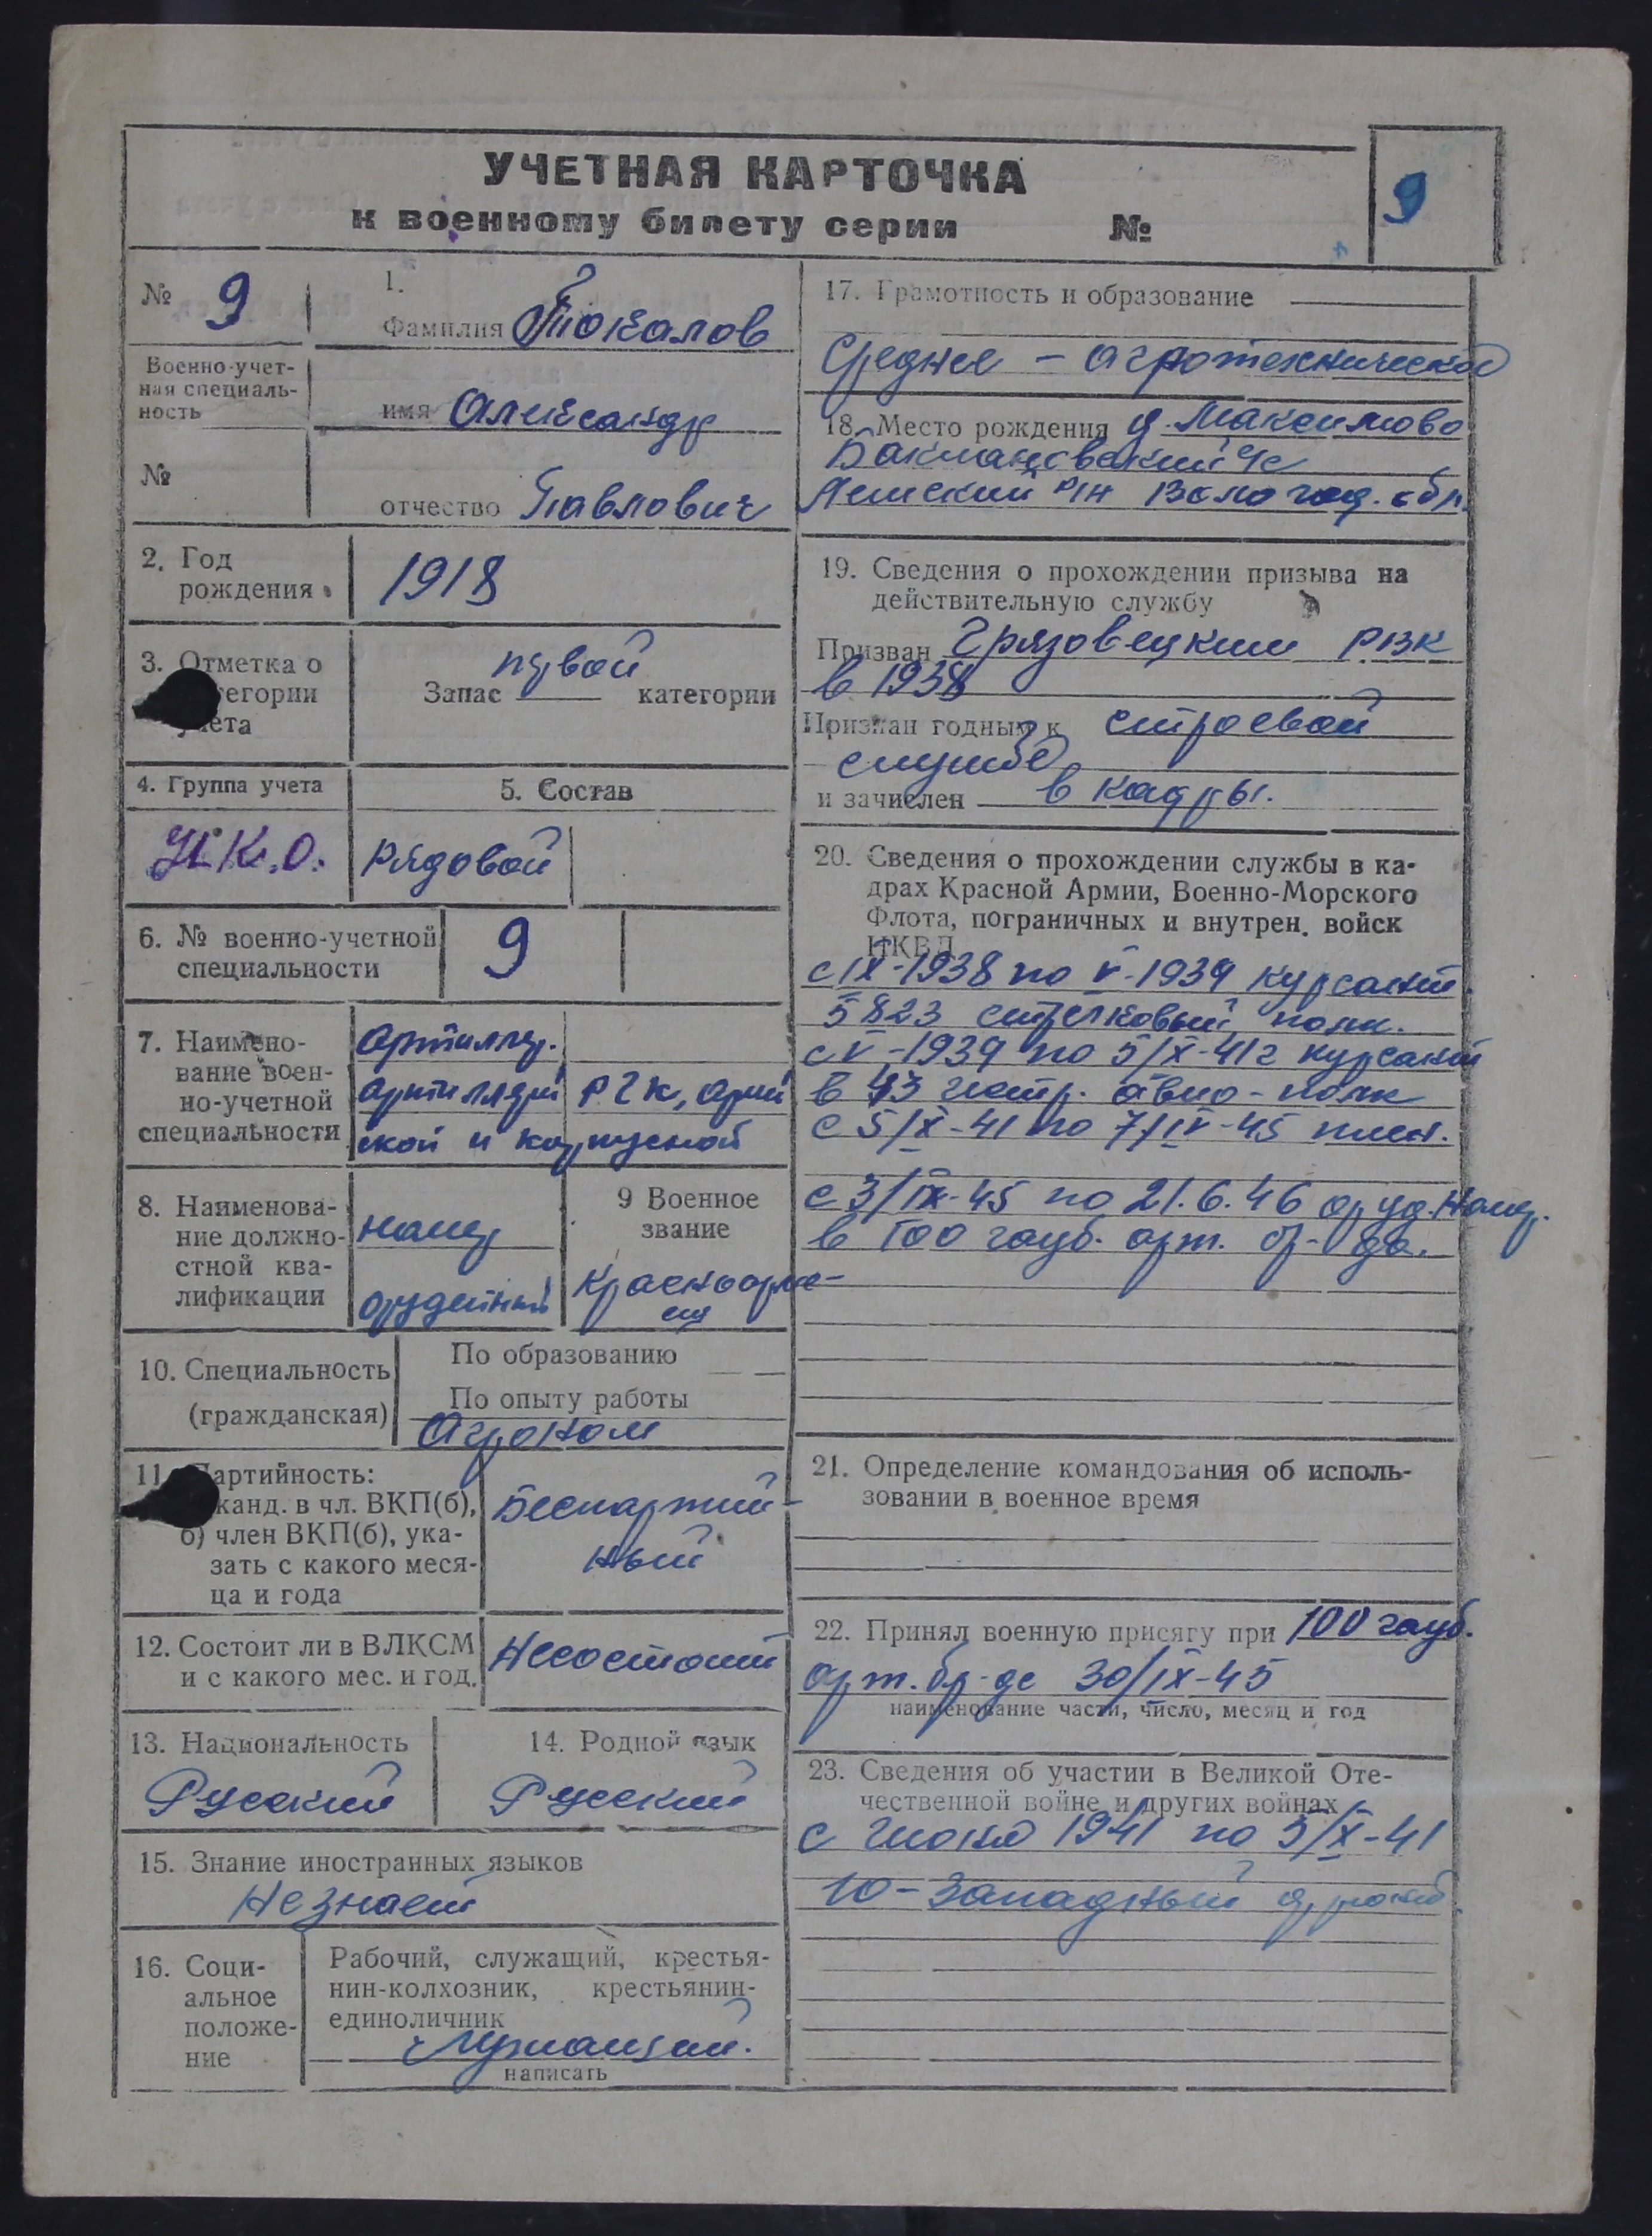 УЧЕТНАЯ КАРТОЧКА
к военному билету серии №
9
№ 9
Военно-учет-
ная специаль-
ность
№
1.
Фамилия Токалов
имя Александр
отчество Павлович
2. Год
рождения
1918
3. Отметка о
тегории
учета
первой
Запас категории
4. Группа учета
Н.К.О.
5. Состав
Рядовой
6. № военно-учетной
специальности
9
7. Наимено-
вание воен-
но-учетной
специальности
Артиллер.
артиллери РГК, арми
ской и корпусной
8. Наименова-
ние должно-
стной ква-
лификации
номер
орудейный
9 Военное
звание
Красноарме-
ец
10. Специальность
(гражданская)
По образованию
По опыту работы
Агроном
11. Партийность:
канд. в чл. ВКП(б),
б) член ВКП(б), ука-
зать с какого меся-
ца и года
Беспартий-
ный
12. Состоит ли в ВЛКСМ
и с какого мес. и год.
Несостоит
13. Национальность
Русский
14. Родной язык
Русский
15. Знание иностранных языков
Незнает
16. Соци-
альное
положе-
ние
Рабочий, служащий, крестья-
нин-колхозник, крестьянин-
единоличник
написать
17. Грамотность и образование
Среднее - агротехническое
18. Место рождения д. Максимово
с/с
р/н Вологод. обл.
19. Сведения о прохождении призыва на
действительную службу
Призван Грязовецким РВК
в 1938
Признан годным к строевой
службе
и зачислен в кадры.
20. Сведения о прохождении службы в ка-
драх Красной Армии, Военно-Морского
Флота, пограничных и внутрен. войск
НКВД
с IX-1938 по V-1939 курсант
5823 стрелковый полк.
с V-1939 по 5/X-41г курсант
в 43 истр. авио-полк
с 5/X-41 по 7/IV-45 плен.
с 3/IX-45 по 21.6.46 оруд. номер.
в 100 гауб. арт. бр-да.
21. Определение командования об исполь-
зовании в военное время
22. Принял военную присягу при 100 гауб.
арт. бр-де 30/IX-45
наименование части, число, месяц и год
23. Сведения об участии в Великой Оте-
чественной войне и других войнах
с июня 1941 по 5/X-41
Ю-Западный фронт.